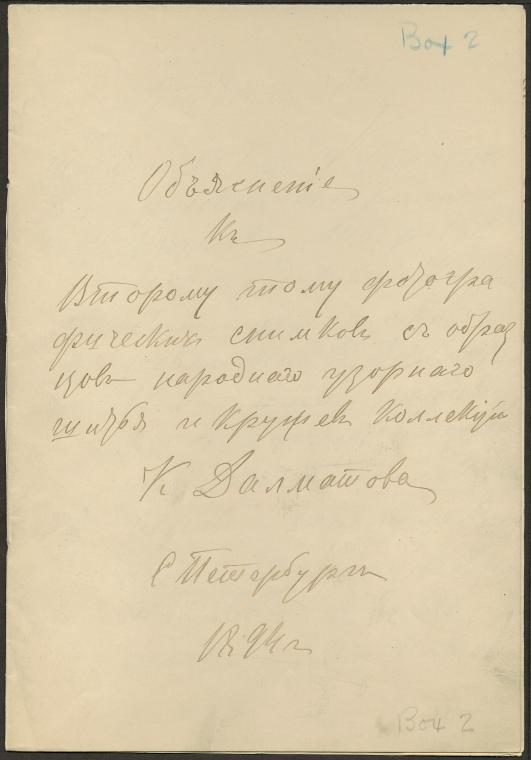 Box 2
Объяснение
Къ
Второму тому фотогра
фическихъ снимковъ съ образ
цовъ народнаго узорнаго
шитья и кружевъ Коллекціи
К Далматова
С Петербургъ
1894 г
Box 2